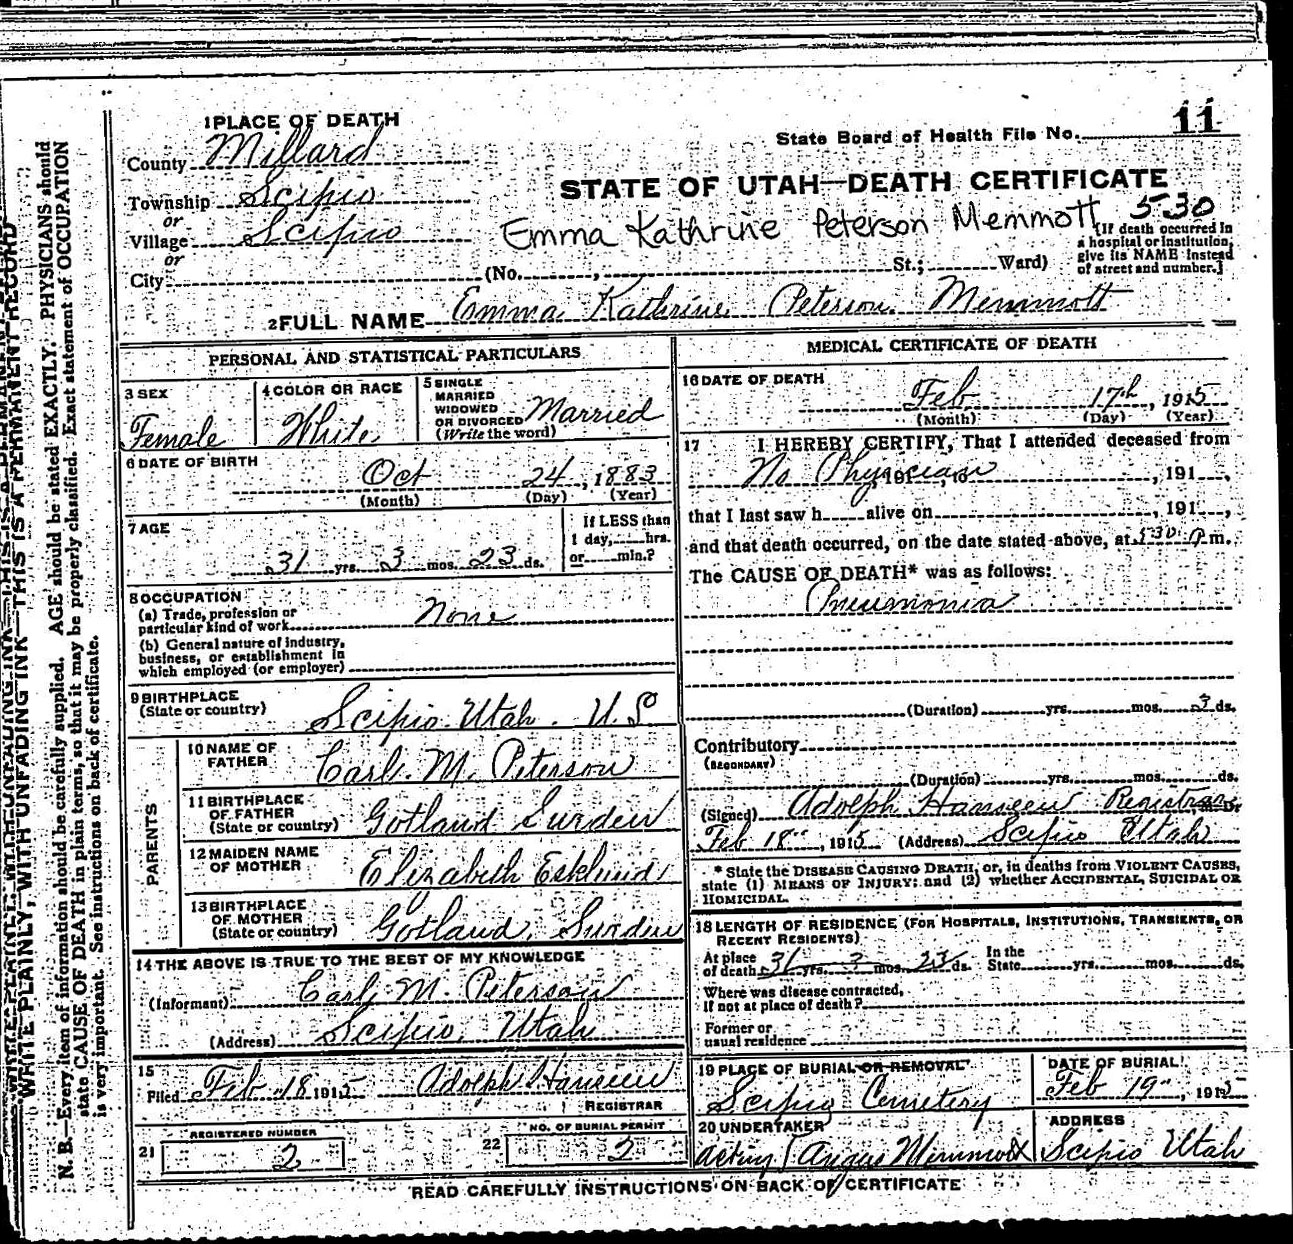 WRITE PLAINLY, WITH UNFADING INK—THIS IS A PERMANENT RECORD
N. B.—Every item of information should be carefully supplied. AGE should be stated EXACTLY. PHYSICIANS should
state CAUSE OF DEATH in plain terms, so that it may be properly classified. Exact statement of OCCUPATION
is very important. See instructions on back of certificate.
1 PLACE OF DEATH
State Board of Health File No. 11
County Millard
STATE OF UTAH—DEATH CERTIFICATE
Township Scipio
or
Village Scipio
or
Emma Kathrine Peterson Memmott 530
[If death occurred in
a hospital or institution,
give its NAME instead
of street and number.]
City (No. , St.; Ward)
2 FULL NAME Emma Kathrine Peterson Memmott
PERSONAL AND STATISTICAL PARTICULARS
3 SEX
Female
4 COLOR OR RACE
White
5 SINGLE
MARRIED
WIDOWED
OR DIVORCED
(Write the word)
Married
6 DATE OF BIRTH
Oct 24, 1883
(Month) (Day) (Year)
7 AGE
31 yrs. 3 mos. 23 ds.
If LESS than
1 day, hrs.
or min.?
8 OCCUPATION
(a) Trade, profession or
particular kind of work None
(b) General nature of industry,
business, or establishment in
which employed (or employer)
9 BIRTHPLACE
(State or country)
Scipio Utah. U. S
PARENTS
10 NAME OF
FATHER
Carl. M. Peterson
11 BIRTHPLACE
OF FATHER
(State or country)
Gotland Sweden
12 MAIDEN NAME
OF MOTHER
Elizabeth Esklund
13 BIRTHPLACE
OF MOTHER
(State or country)
Gotland, Sweden
14 THE ABOVE IS TRUE TO THE BEST OF MY KNOWLEDGE
(Informant) Carl M. Peterson
(Address) Scipio, Utah
15
Filed Feb 18 1915 Adolph Hanseen
REGISTRAR
21 REGISTERED NUMBER
2
22 NO. OF BURIAL PERMIT
2
MEDICAL CERTIFICATE OF DEATH
16 DATE OF DEATH
Feb 17th, 1915
(Month) (Day) (Year)
17 I HEREBY CERTIFY, That I attended deceased from
No Physician , 191 , to , 191 ,
that I last saw h alive on , 191 ,
and that death occurred, on the date stated above, at 5-30 P m.
The CAUSE OF DEATH* was as follows:
Pneumonia
(Duration) yrs. mos. 3 ds.
Contributory
(SECONDARY)
(Duration) yrs. mos. ds.
(Signed) Adolph Hanseen Registrar M. D.
Feb 18, 1915 (Address) Scipio Utah
* State the DISEASE CAUSING DEATH, or, in deaths from VIOLENT CAUSES,
state (1) MEANS OF INJURY; and (2) whether ACCIDENTAL, SUICIDAL OR
HOMICIDAL.
18 LENGTH OF RESIDENCE (FOR HOSPITALS, INSTITUTIONS, TRANSIENTS, OR
RECENT RESIDENTS)
At place
of death 31 yrs. 3 mos. 23 ds.
In the
State yrs. mos. ds.
Where was disease contracted,
If not at place of death?
Former or
usual residence
19 PLACE OF BURIAL OR REMOVAL
Scipio Cemetery
DATE OF BURIAL
Feb 19, 1915
20 UNDERTAKER
acting Angus Memmott
ADDRESS
Scipio Utah
READ CAREFULLY INSTRUCTIONS ON BACK OF CERTIFICATE